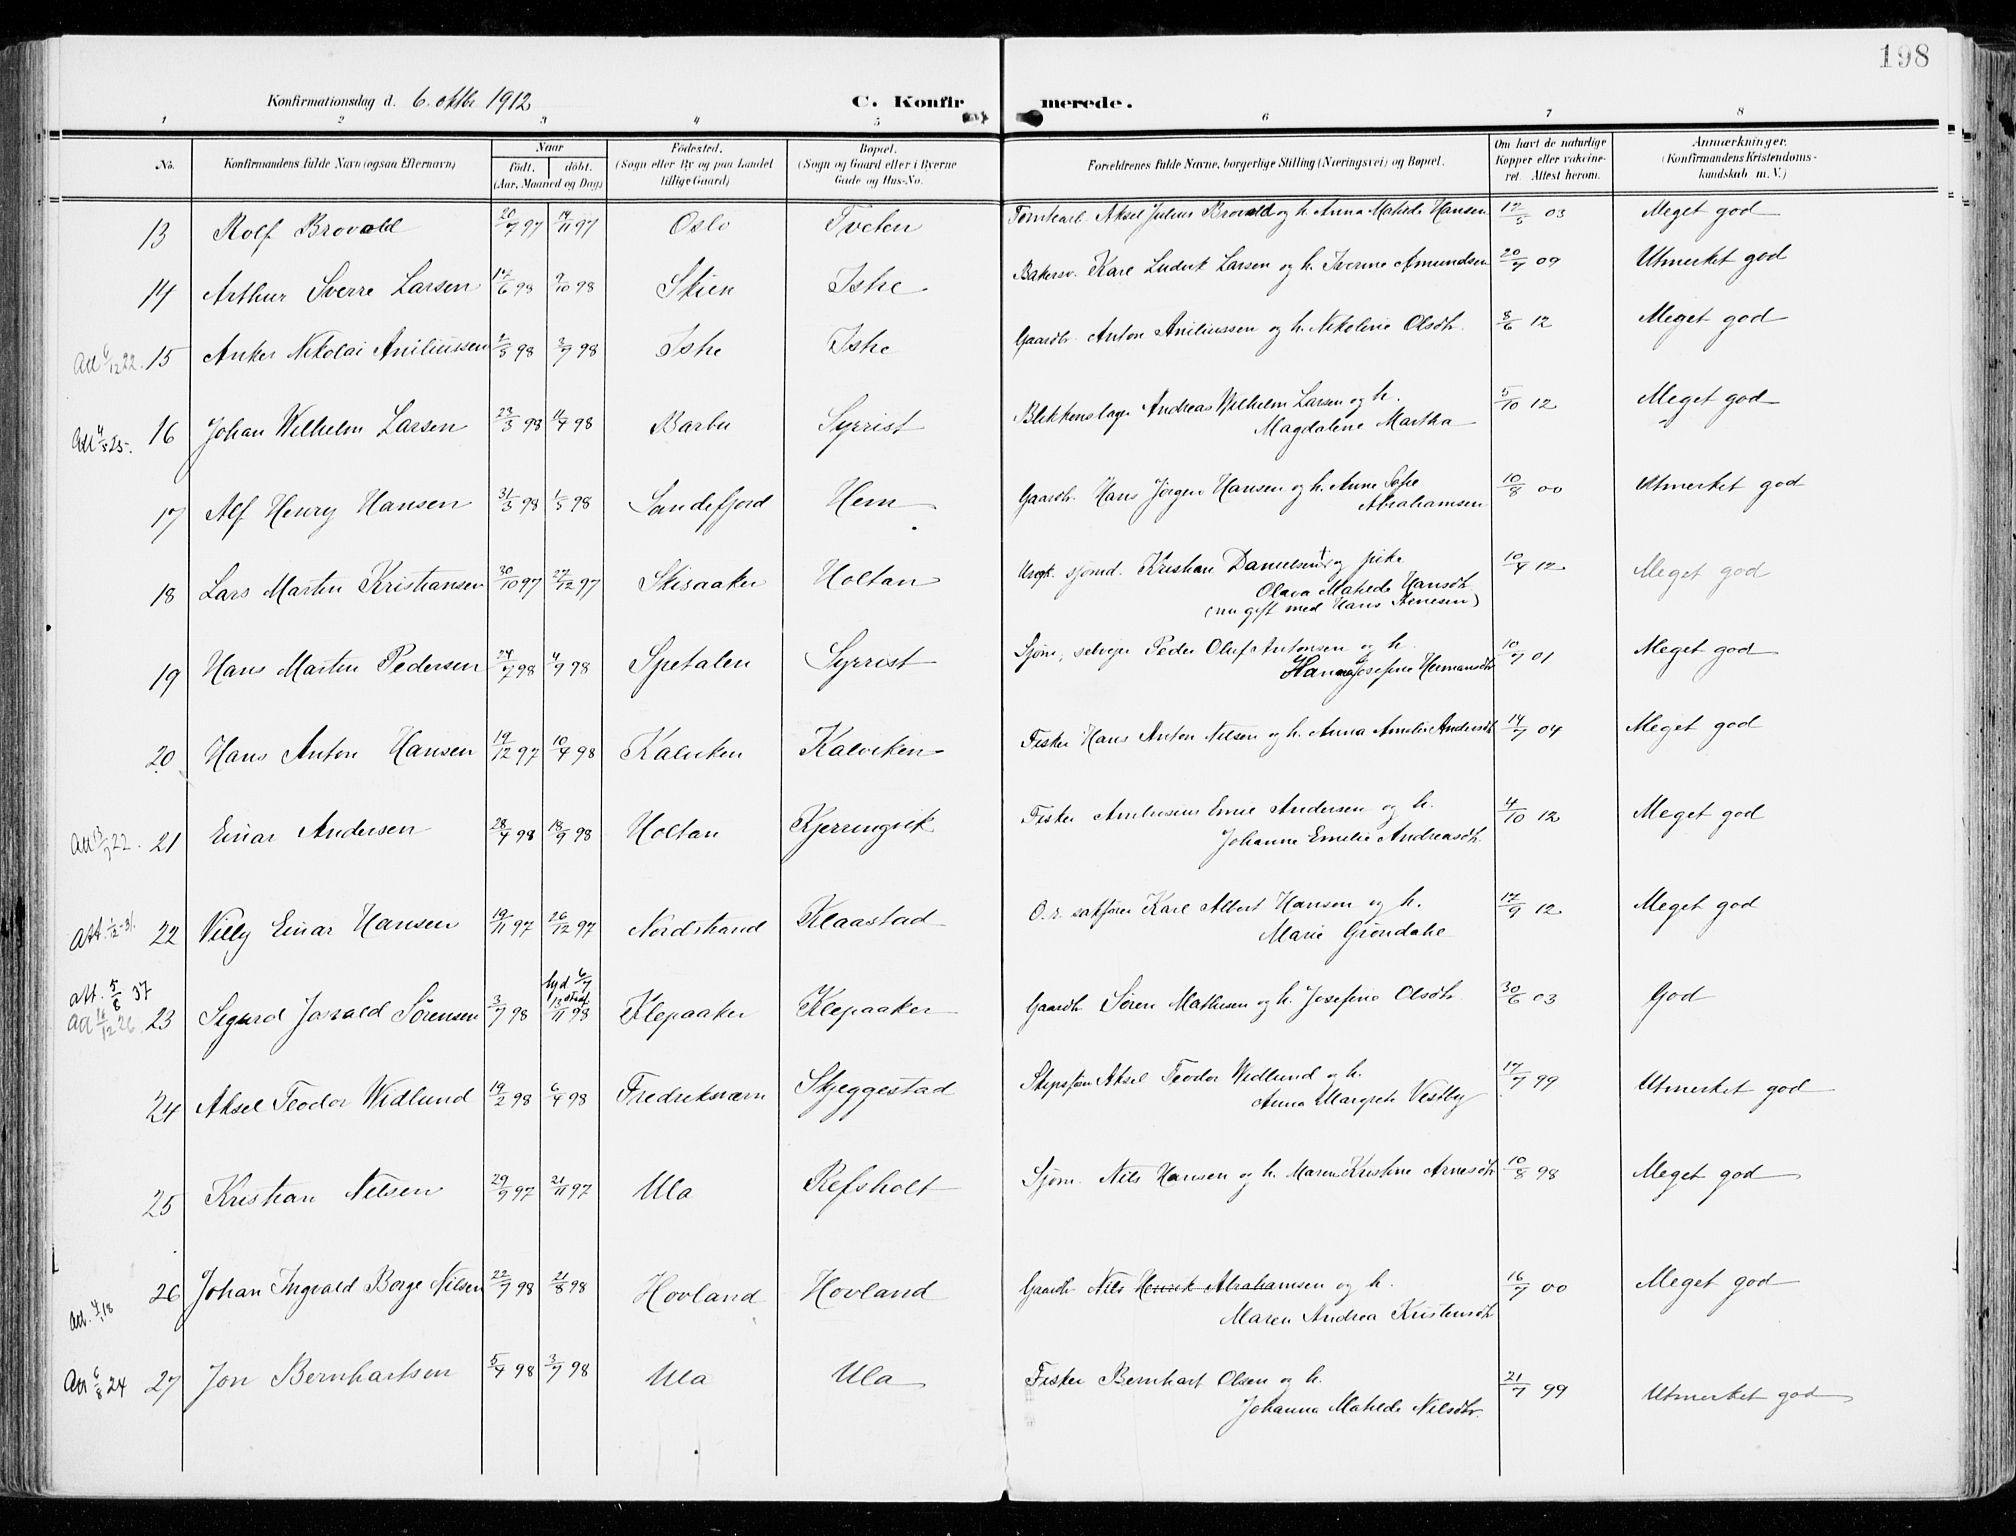 198
Konfirmationsdag d. 6. oktbr 1912
C. Konfirmerede.
1 2 3 4 5 6 7 8
No.
Konfirmandens fulde Navn (ogsaa Efternavn)
Naar
født. døbt.
(Aar, Maaned og Dag)
Fødested.
(Sogn eller By og paa Landet
tillige Gaard)
Bopæl.
(Sogn og Gaard eller i Byerne
Gade og Hus-No.
Forældrenes fulde Navne, borgerlige Stilling (Næringsvei) og Bopæl.
Om havt de naturlige
Kopper eller vakcine-
ret. Attest herom.
Anmærkninger.
(Konfirmandens Kristendoms-
kundskab m. V.)
13 Rolf Brovold 20/7 97 14/11 97 Oslo Tveten Tomtearb. Aksel Julius Brovold og h. Anna Matilde Hansen 12/5 03 Meget god
14 Arthur Sverre Larsen 17/6 98 9/10 98 Skien Istre Bakersv. Karl Ludvik Larsen og h. Iverine Amundsen 20/7 09 Utmerket god
Att 6/12 22. 15 Anker Nikolai Aniliussen 2/5 98 3/7 98 Istre Istre Gaardbr. Anton Aniliussen og h. Nikoline Olsdtr. 8/6 12 Meget god
Att 4/5 25. 16 Johan Wilhelm Larsen 23/3 98 11/4 98 Barbu Syrrist Blikkenslager Andreas Wilhelm Larsen og h.
Magdalene Martha 5/10 12 Meget god
17 Alf Henry Hansen 31/3 98 1/5 98 Sandefjord Hem Gaardbr. Hans Jørgen Hansen og h. Anne Sofie
Abrahamsen 10/8 00 Utmerket god
18 Lars Martin Kristiansen 30/10 97 27/12 97 Skisaaker Holtan Ungk. sjømd. Kristian Danielsen † og pike
Olava Matilde Hansdtr.
(nu gift med Hans Arnesen) 10/9 12 Meget god
19 Hans Martin Pedersen 24/7 98 4/9 98 Spetalen Syrrist Sjøm., selveier Peder Oluf Antonsen og h.
Hanna Josefine Hermansdtr 10/7 01 Meget god
20 Hans Anton Hansen 19/12 97 10/4 98 Kalviken Kalviken Fisker Hans Anton Nilsen og h. Anna Amalie Andersdtr 14/7 04 Meget god
Att 13/7 22. 21 Einar Andersen 28/4 98 18/9 98 Holtan Kjerringvik Fisker Ambrosius Emil Andersen og h.
Johanne Emelie Andreasdtr. 4/10 12 Meget god
Att. 1/2-31. 22 Villy Einar Hansen 19/11 97 26/12 97 Nordstrand Klaastad O.r. sakfører Karl Albert Hansen og h.
Marie Grøndahl 17/9 12 Meget god
att. 5/8 37
Att 16/12 26. 23 Sigurd Jørald Sørensen 3/7 98 hjd 6/7
13/11 98 Klepaaker Klepaaker Gaardbr Søren Mathisen og h. Josefine Olsdtr. 30/6 03 God
24 Aksel Teodor Widlund 19/2 98 6/4 98 Fredriksværn Skjeggestad Skipsfører Aksel Teodor Widlund og h.
Anna Margrete Vestby 17/7 99 Utmerket god
25 Kristian Nilsen 29/9 97 21/11 97 Ula Refsholt Sjøm. Nils Hansen og h. Maren Kristine Arnesdtr 10/8 98 Meget god
Att. 4/1 18 26 Johan Ingvald Borge Nilsen 22/7 98 21/8 98 Hovland Hovland Gaardbr. Nils Henrik Abrahamsen og h.
Maren Andrea Kristensdtr 16/7 00 Meget god
Att 6/8 24 27 Jon Bernhartsen 5/4 98 3/7 98 Ula Ula Fisker Bernhart Olsen og h.
Johanna Matilde Nilsdtr. 21/7 99 Utmerket god